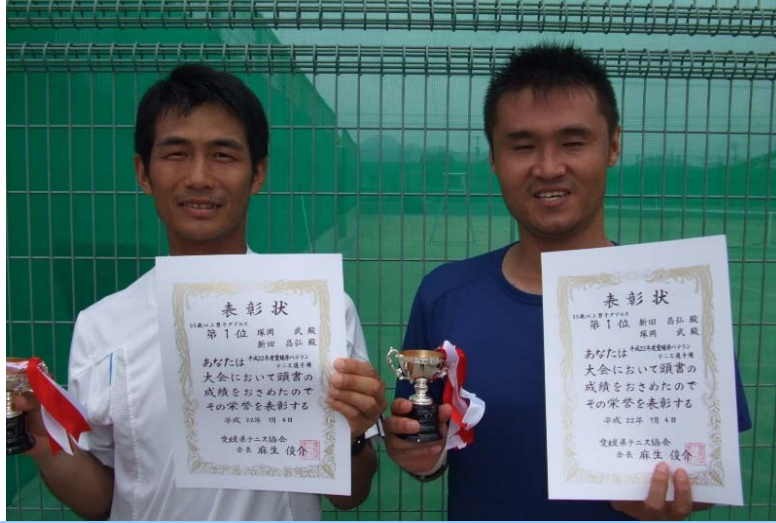 表彰状
35歳以上男子ダブルス
第1位 塚岡 武 殿
新田 昌弘 殿
あなたは 平成22年度愛媛県ベテラン
テニス選手権
大会において頭書の
成績をおさめたので
その栄誉を表彰する
平成 22年 7月 4日
愛媛県テニス協会
会長 麻生 俊介
表彰状
35歳以上男子ダブルス
第1位 新田 昌弘 殿
塚岡 武 殿
あなたは 平成22年度愛媛県ベテラン
テニス選手権
大会において頭書の
成績をおさめたので
その栄誉を表彰する
平成 22年 7月 4日
愛媛県テニス協会
会長 麻生 俊介